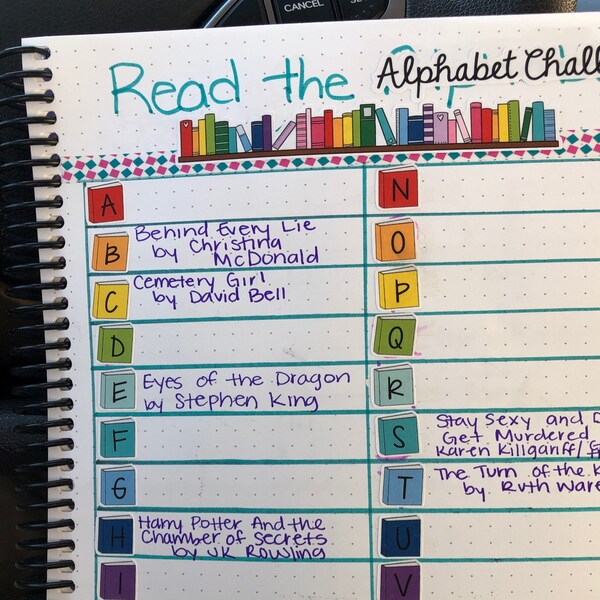 CANCEL
Read the Alphabet Chall
A
B Behind Every Lie
by Christina
McDonald
C Cemetery Girl
by David Bell
D
E Eyes of the Dragon
by Stephen King
F
G
H Harry Potter And the
Chamber of Secrets
by JK Rowling
I
N
O
P
Q
R
S Stay Sexy and D
Get Murdered
Karen Killgariff/
T The Turn of the K
by Ruth Ware
U
V